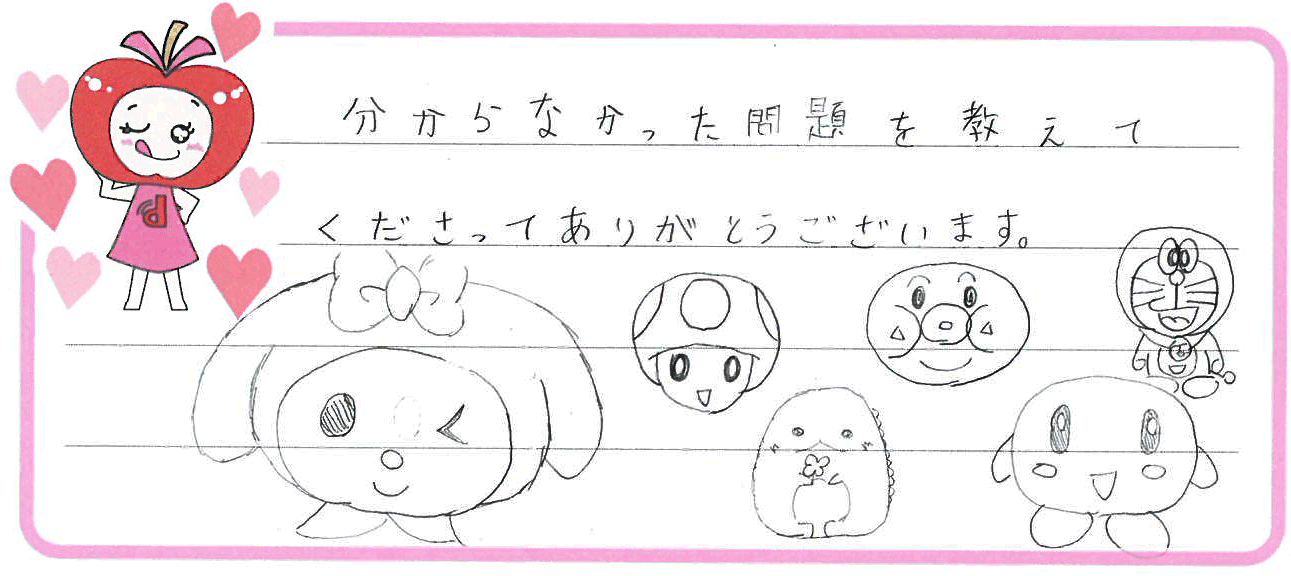 分からなかった問題を教えて
くださってありがとうございます。
d